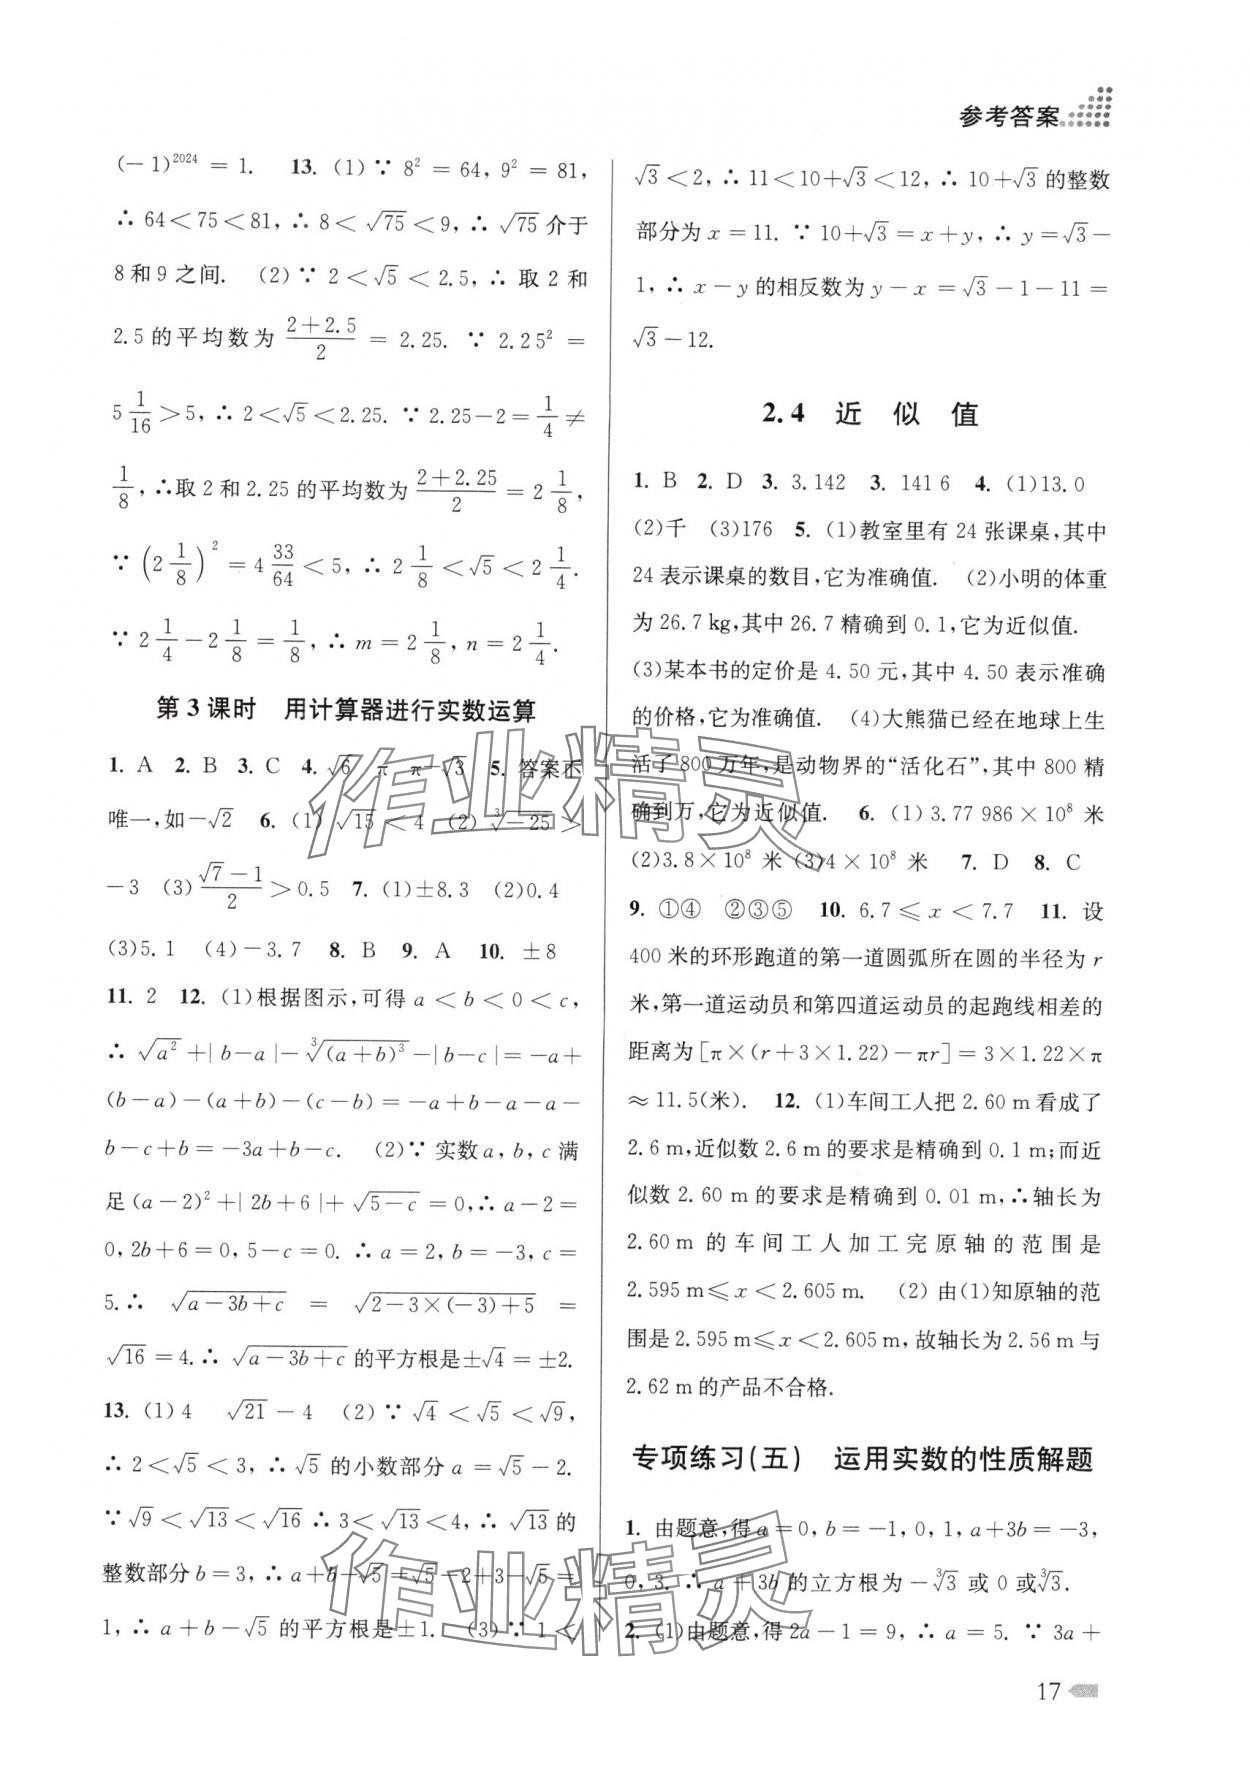 参考答案
(－1)²⁰²⁴ = 1. 13. (1) ∵ 8² = 64, 9² = 81,
∴ 64＜75＜81, ∴ 8＜√75＜9, ∴ √75 介于
8 和 9 之间. (2) ∵ 2＜√5＜2.5, ∴ 取 2 和
2.5 的平均数为 (2＋2.5)/2 = 2.25. ∵ 2.25² =
5 1/16＞5, ∴ 2＜√5＜2.25. ∵ 2.25－2 = 1/4 ≠
1/8, ∴取 2 和 2.25 的平均数为 (2＋2.25)/2 = 2 1/8,
∵ (2 1/8)² = 4 33/64＜5, ∴ 2 1/8＜√5＜2 1/4.
∵ 2 1/4－2 1/8 = 1/8, ∴ m = 2 1/8, n = 2 1/4.
第 3 课时 用计算器进行实数运算
1. A 2. B 3. C 4. √6 π π－√3 5. 答案不
唯一,如－√2 6. (1) √15＜4 (2) ∛－25＞
－3 (3) (√7－1)/2＞0.5 7. (1)±8.3 (2)0.4
(3)5.1 (4)－3.7 8. B 9. A 10. ±8
11. 2 12. (1)根据图示,可得 a＜b＜0＜c,
∴ √a²＋|b－a|－∛(a＋b)³－|b－c| = －a＋
(b－a)－(a＋b)－(c－b) = －a＋b－a－a－
b－c＋b = －3a＋b－c. (2)∵ 实数 a, b, c 满
足 (a－2)²＋|2b＋6|＋√5－c = 0, ∴ a－2 =
0, 2b＋6 = 0, 5－c = 0. ∴ a = 2, b = －3, c =
5. ∴ √a－3b＋c = √2－3×(－3)＋5 =
√16 = 4. ∴ √a－3b＋c 的平方根是±√4 = ±2.
13. (1) 4 √21－4 (2) ∵ √4＜√5＜√9,
∴ 2＜√5＜3, ∴ √5 的小数部分 a = √5－2.
∵ √9＜√13＜√16 ∴ 3＜√13＜4, ∴ √13 的
整数部分 b = 3, ∴ a＋b－√5 = √5－2＋3－√5 =
1, ∴ a＋b－√5 的平方根是±1. (3) ∵ 1＜
√3＜2, ∴ 11＜10＋√3＜12, ∴ 10＋√3 的整数
部分为 x = 11. ∵ 10＋√3 = x＋y, ∴ y = √3－
1, ∴ x－y 的相反数为 y－x = √3－1－11 =
√3－12.
2.4 近 似 值
1. B 2. D 3. 3.142 3. 141 6 4. (1)13.0
(2)千 (3)176 5. (1)教室里有 24 张课桌,其中
24 表示课桌的数目,它为准确值. (2)小明的体重
为 26.7 kg,其中 26.7 精确到 0.1,它为近似值.
(3)某本书的定价是 4.50 元,其中 4.50 表示准确
的价格,它为准确值. (4)大熊猫已经在地球上生
活了 800 万年,是动物界的“活化石”,其中 800 精
确到万,它为近似值. 6. (1) 3.77 986×10⁸ 米
(2)3.8×10⁸ 米 (3)4×10⁸ 米 7. D 8. C
9. ①④ ②③⑤ 10. 6.7≤x＜7.7 11. 设
400 米的环形跑道的第一道圆弧所在圆的半径为 r
米,第一道运动员和第四道运动员的起跑线相差的
距离为[π×(r＋3×1.22)－πr] = 3×1.22×π
≈11.5(米). 12. (1)车间工人把 2.60 m 看成了
2.6 m,近似数 2.6 m 的要求是精确到 0.1 m;而近
似数 2.60 m 的要求是精确到 0.01 m,∴轴长为
2.60 m 的车间工人加工完原轴的范围是
2.595 m≤x＜2.605 m. (2) 由(1)知原轴的范
围是 2.595 m≤x＜2.605 m,故轴长为 2.56 m 与
2.62 m 的产品不合格.
专项练习(五) 运用实数的性质解题
1. 由题意,得 a = 0, b = －1, 0, 1, a＋3b = －3,
0, 3. ∴ a＋3b 的立方根为－∛3 或 0 或∛3.
2. (1)由题意,得 2a－1 = 9, ∴ a = 5. ∵ 3a＋
17
作业精灵
作业精灵